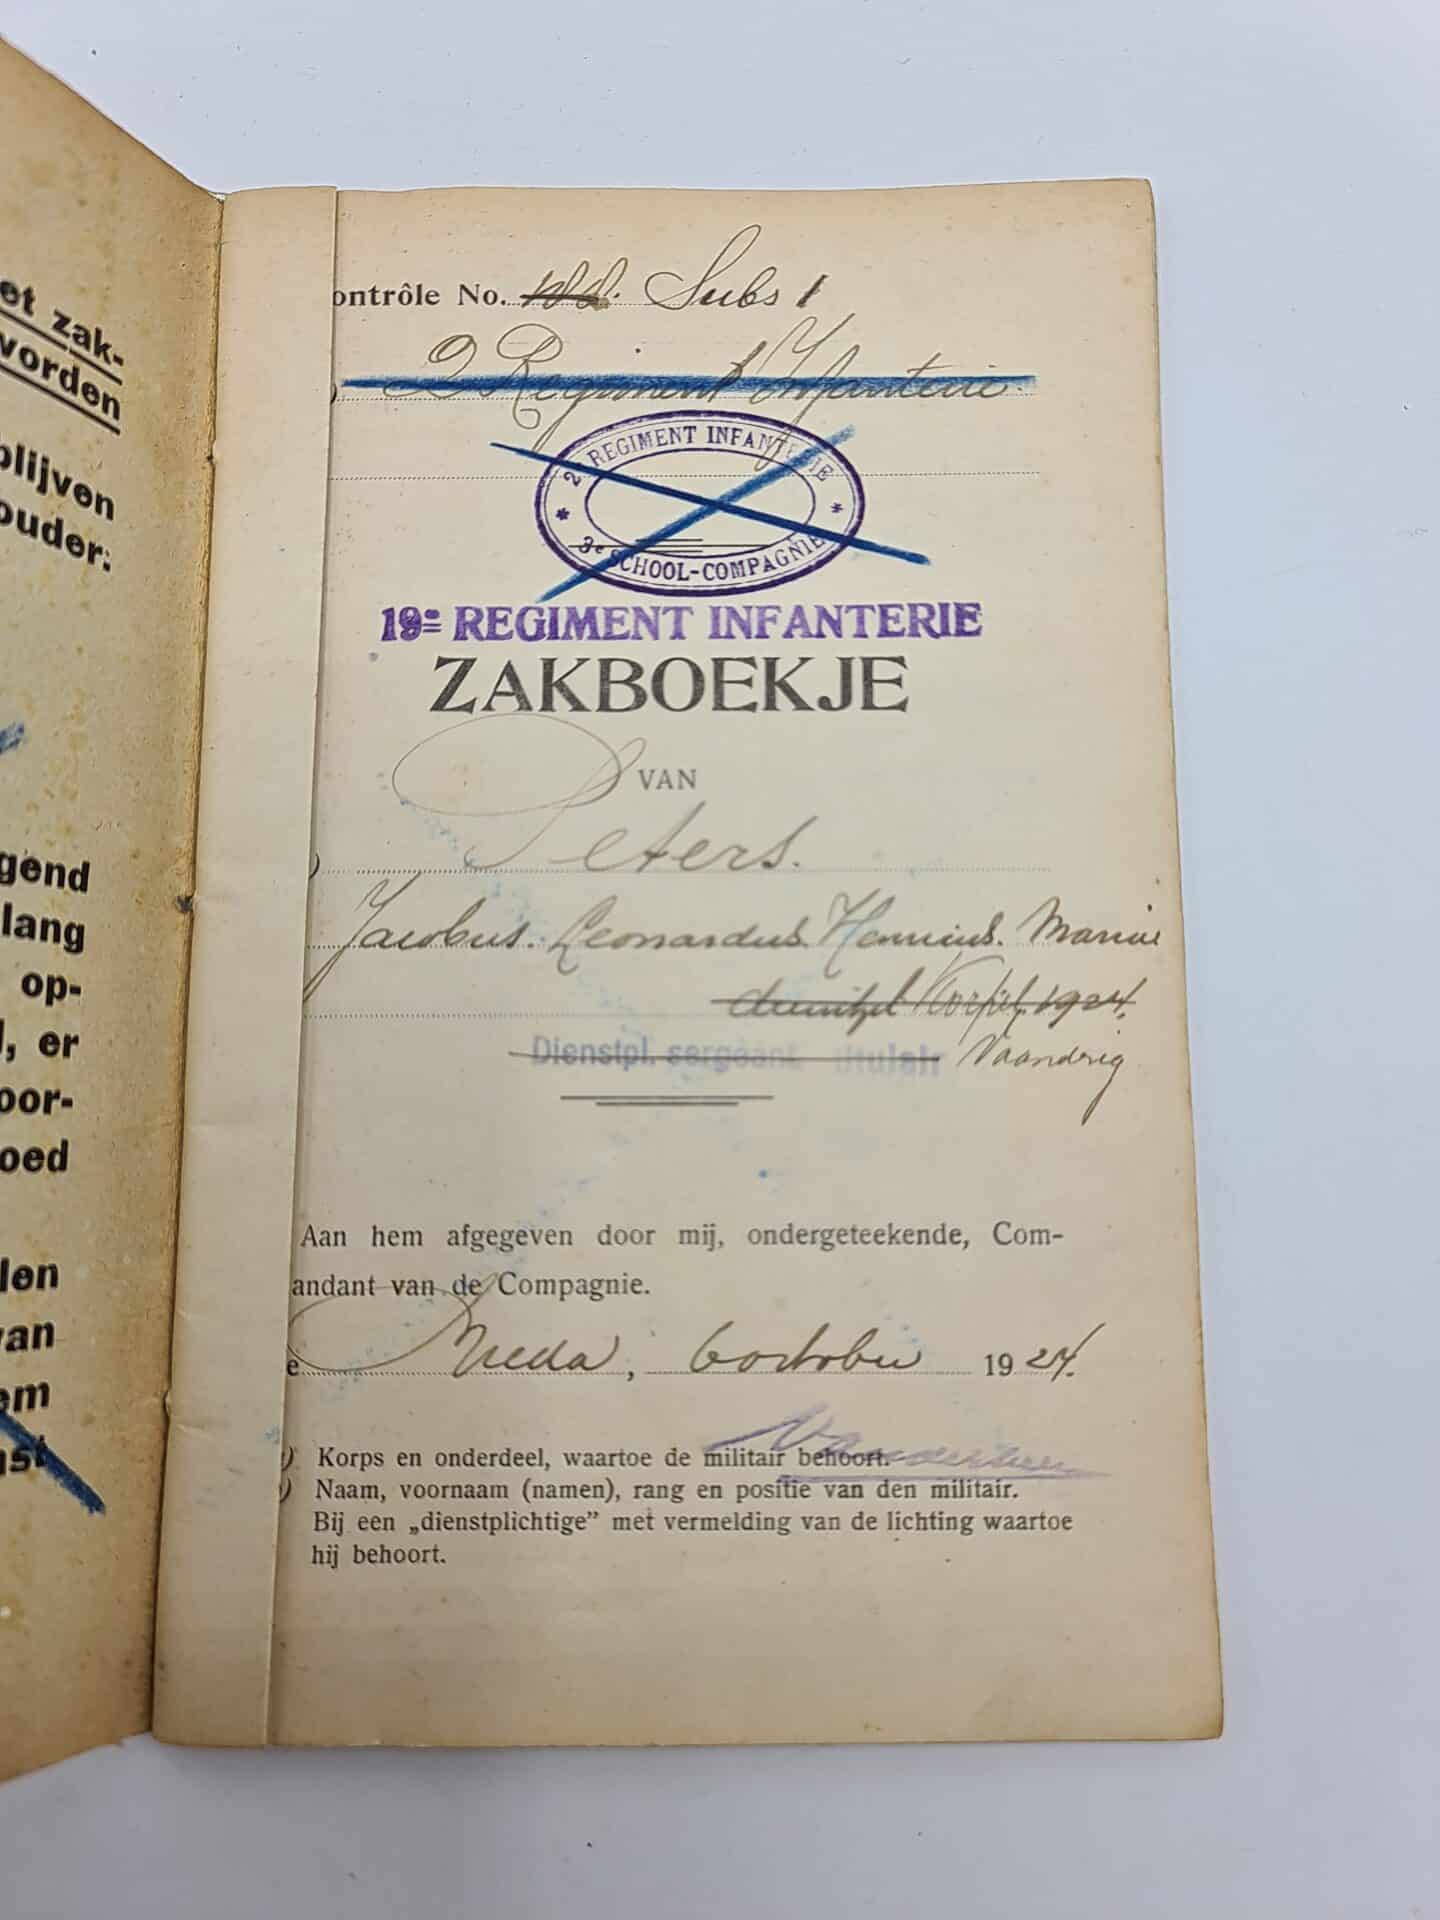 et zak-
vorden
blijven
ouder:
gend
lang
op-
, er
oor-
oed
len
van
em
st
ontrôle No. Subs 1
2 Regiment Infanterie
2e REGIMENT INFANTERIE
3e SCHOOL-COMPAGNIE
REGIMENT INFANTERIE
ZAKBOEKJE
VAN
Peters.
Jacobus. Leonardus. Henricus. Marius
Korpl. 1924.
Dienstpl. sergeant titulair Vaandrig
Aan hem afgegeven door mij, ondergeteekende, Com-
andant van de Compagnie.
e Breda, 6 october 1924.
) Korps en onderdeel, waartoe de militair behoort.
) Naam, voornaam (namen), rang en positie van den militair.
Bij een „dienstplichtige” met vermelding van de lichting waartoe
hij behoort.